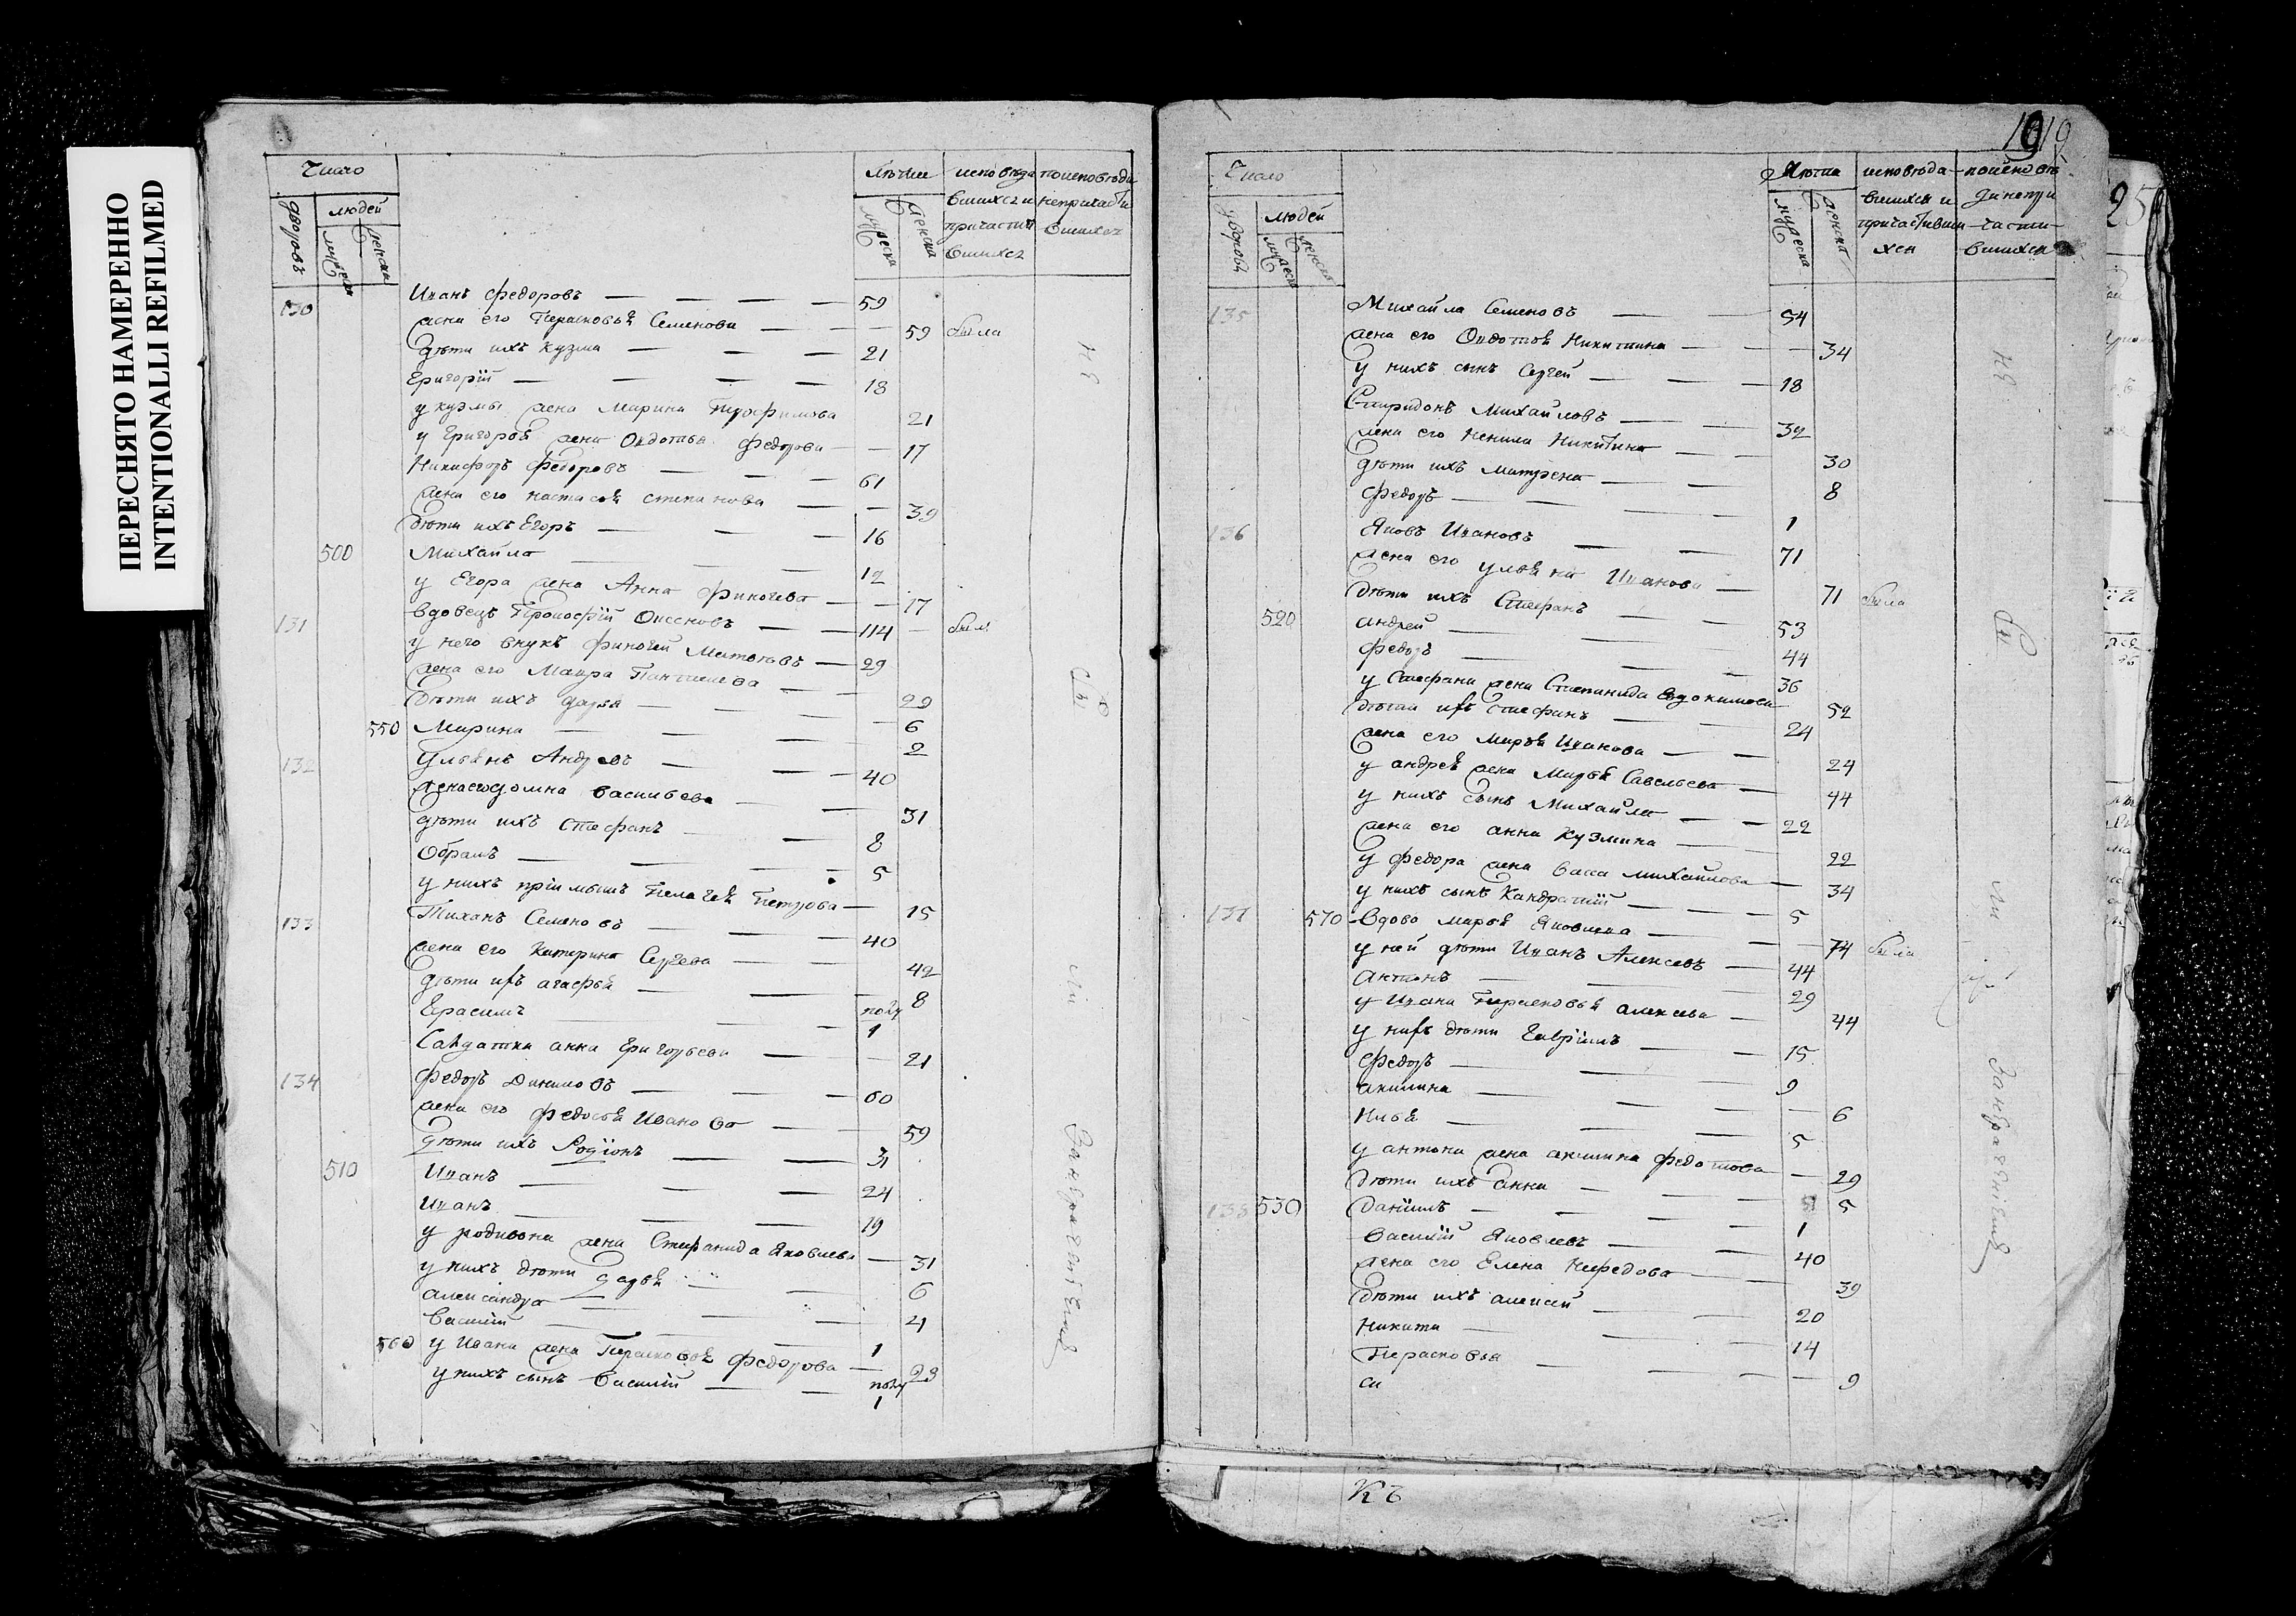 ПЕРЕСНЯТО НАМЕРЕННО
INTENTIONALLI REFILMED
Число
дворовъ
людей
мужеска
женска
Лѣтие
мужеска
женска
исповѣда
вшихся и
причасти
вшихся
поисповѣди
непричасти
вшихся
130 Иванъ федоровъ 59
жена его Парасковья Семенова 59 была
дѣти ихъ Кузма 21
Григорій 18
у кузмы жена Марина Трофимова 21
у Григорья жена Овдотья федорова 17
Никифоръ федоровъ 61
жена его настасья степанова 39
дѣти ихъ Егоръ 16
500 Михайло 12
у Егора жена Анна финогева 17
131 вдовецъ Прокофій 114 былъ
у него внукъ финогей 29
жена его Мавра 29
дѣти ихъ дарья 6
550 Марина 2
132 Ульянъ Андреевъ 40
жена его домна васильева 31
дѣти ихъ Стефанъ 8
Обрамъ 5
у нихъ пріимышъ Пелагея Петрова 15
133 Тиханъ Семеновъ 40
жена его Катерина Сергева 42
дѣти ихъ агафья 8
Герасимъ полу 1
Салдатка анна Григорьева 21
134 федоръ Даниловъ 60
жена его федосья Иванова 59
дѣти ихъ Родіонъ 31
510 Иванъ 24
Иванъ 19
у родивона жена Стефанида Яковлева 31
у нихъ дѣти дарья 6
александра 4
Василій 1
560 у Ивана жена Парасковья федорова 23
у нихъ сынъ Василій полу 1
не
сы
ли
Занебрежениемъ
19
Число
дворовъ
людей
мужеска
женска
Лѣтиа
мужеска
женска
исповѣда
вшихся и
причастивши
хся
поисповѣ
ди непри
части
вшихся
135 Михайла Семеновъ 54
жена его Овдотья Никитина 34
у нихъ сынъ Сергей 18
Спиридонъ Михайловъ 32
жена его Ненила Никитина 30
дѣти ихъ Матрена 8
федоръ 1
136 Яковъ Ивановъ 71
жена его ульяна Иванова 71 была
дѣти ихъ Стефанъ 53
520 андрей 44
федоръ 36
у Стефана жена Степанида Евдокимова 52
дѣти ихъ стефанъ 24
жена его Марья Иванова 24
у андрея жена Марья Савельева 44
у нихъ сынъ Михайла 22
жена его анна Кузмина 22
у федора жена васа михайлова 34
у нихъ сынъ Кандратій 5
137 570 Вдова марья Яковлева 74 была
у ней дѣти Иванъ Алексевъ 44
антонъ 29
у Ивана Парасковья алексева 44
у нихъ дѣти Гаврилъ 15
федоръ 9
акилина 6
Илья 5
у антона жена акилина федотова 29
дѣти ихъ анна 5
530 Данилъ 1
138 Василій Яковлевъ 40
жена его Елена Нефедова 39
дѣти ихъ алексей 20
Никита 14
Парасковья 9
си
не
Занебрежениемъ
Къ